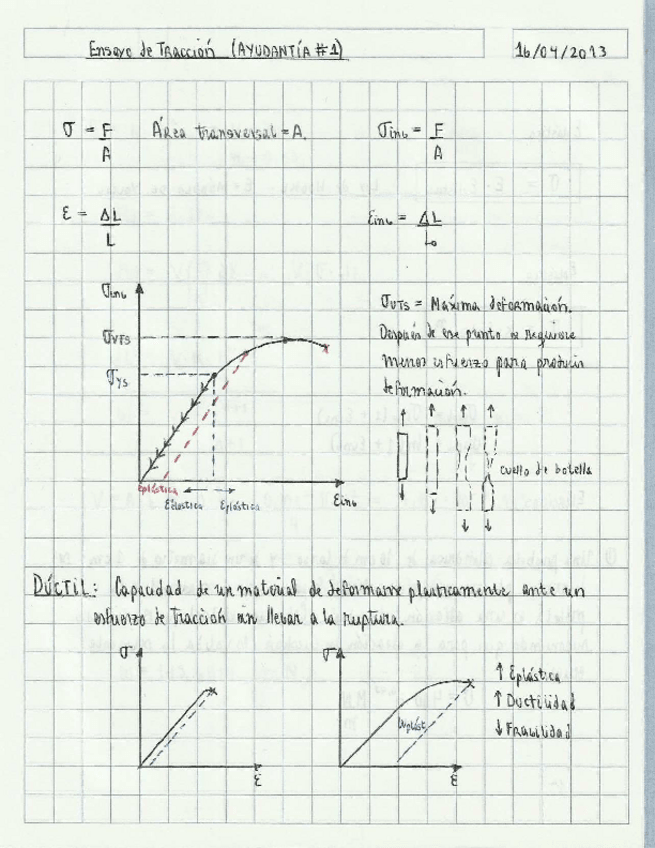 Ensayo de Tracción (AYUDANTÍA #1)
16/04/2013
σ = F/A Área transversal = A. σing = F/A
ε = ΔL/L εing = ΔL/L₀
σing
σUTS
σYS
εplástica
εelástica εplástica
εing
σUTS = Máxima deformación.
Después de ese punto se requiere
menos esfuerzo para producir
deformación.
cuello de botella
DÚCTIL: Capacidad de un material de deformarse plasticamente ante un
esfuerzo de tracción sin llegar a la ruptura.
σ
ε
σ
ε
↑ εplástica
↑ Ductilidad
↓ Fragilidad